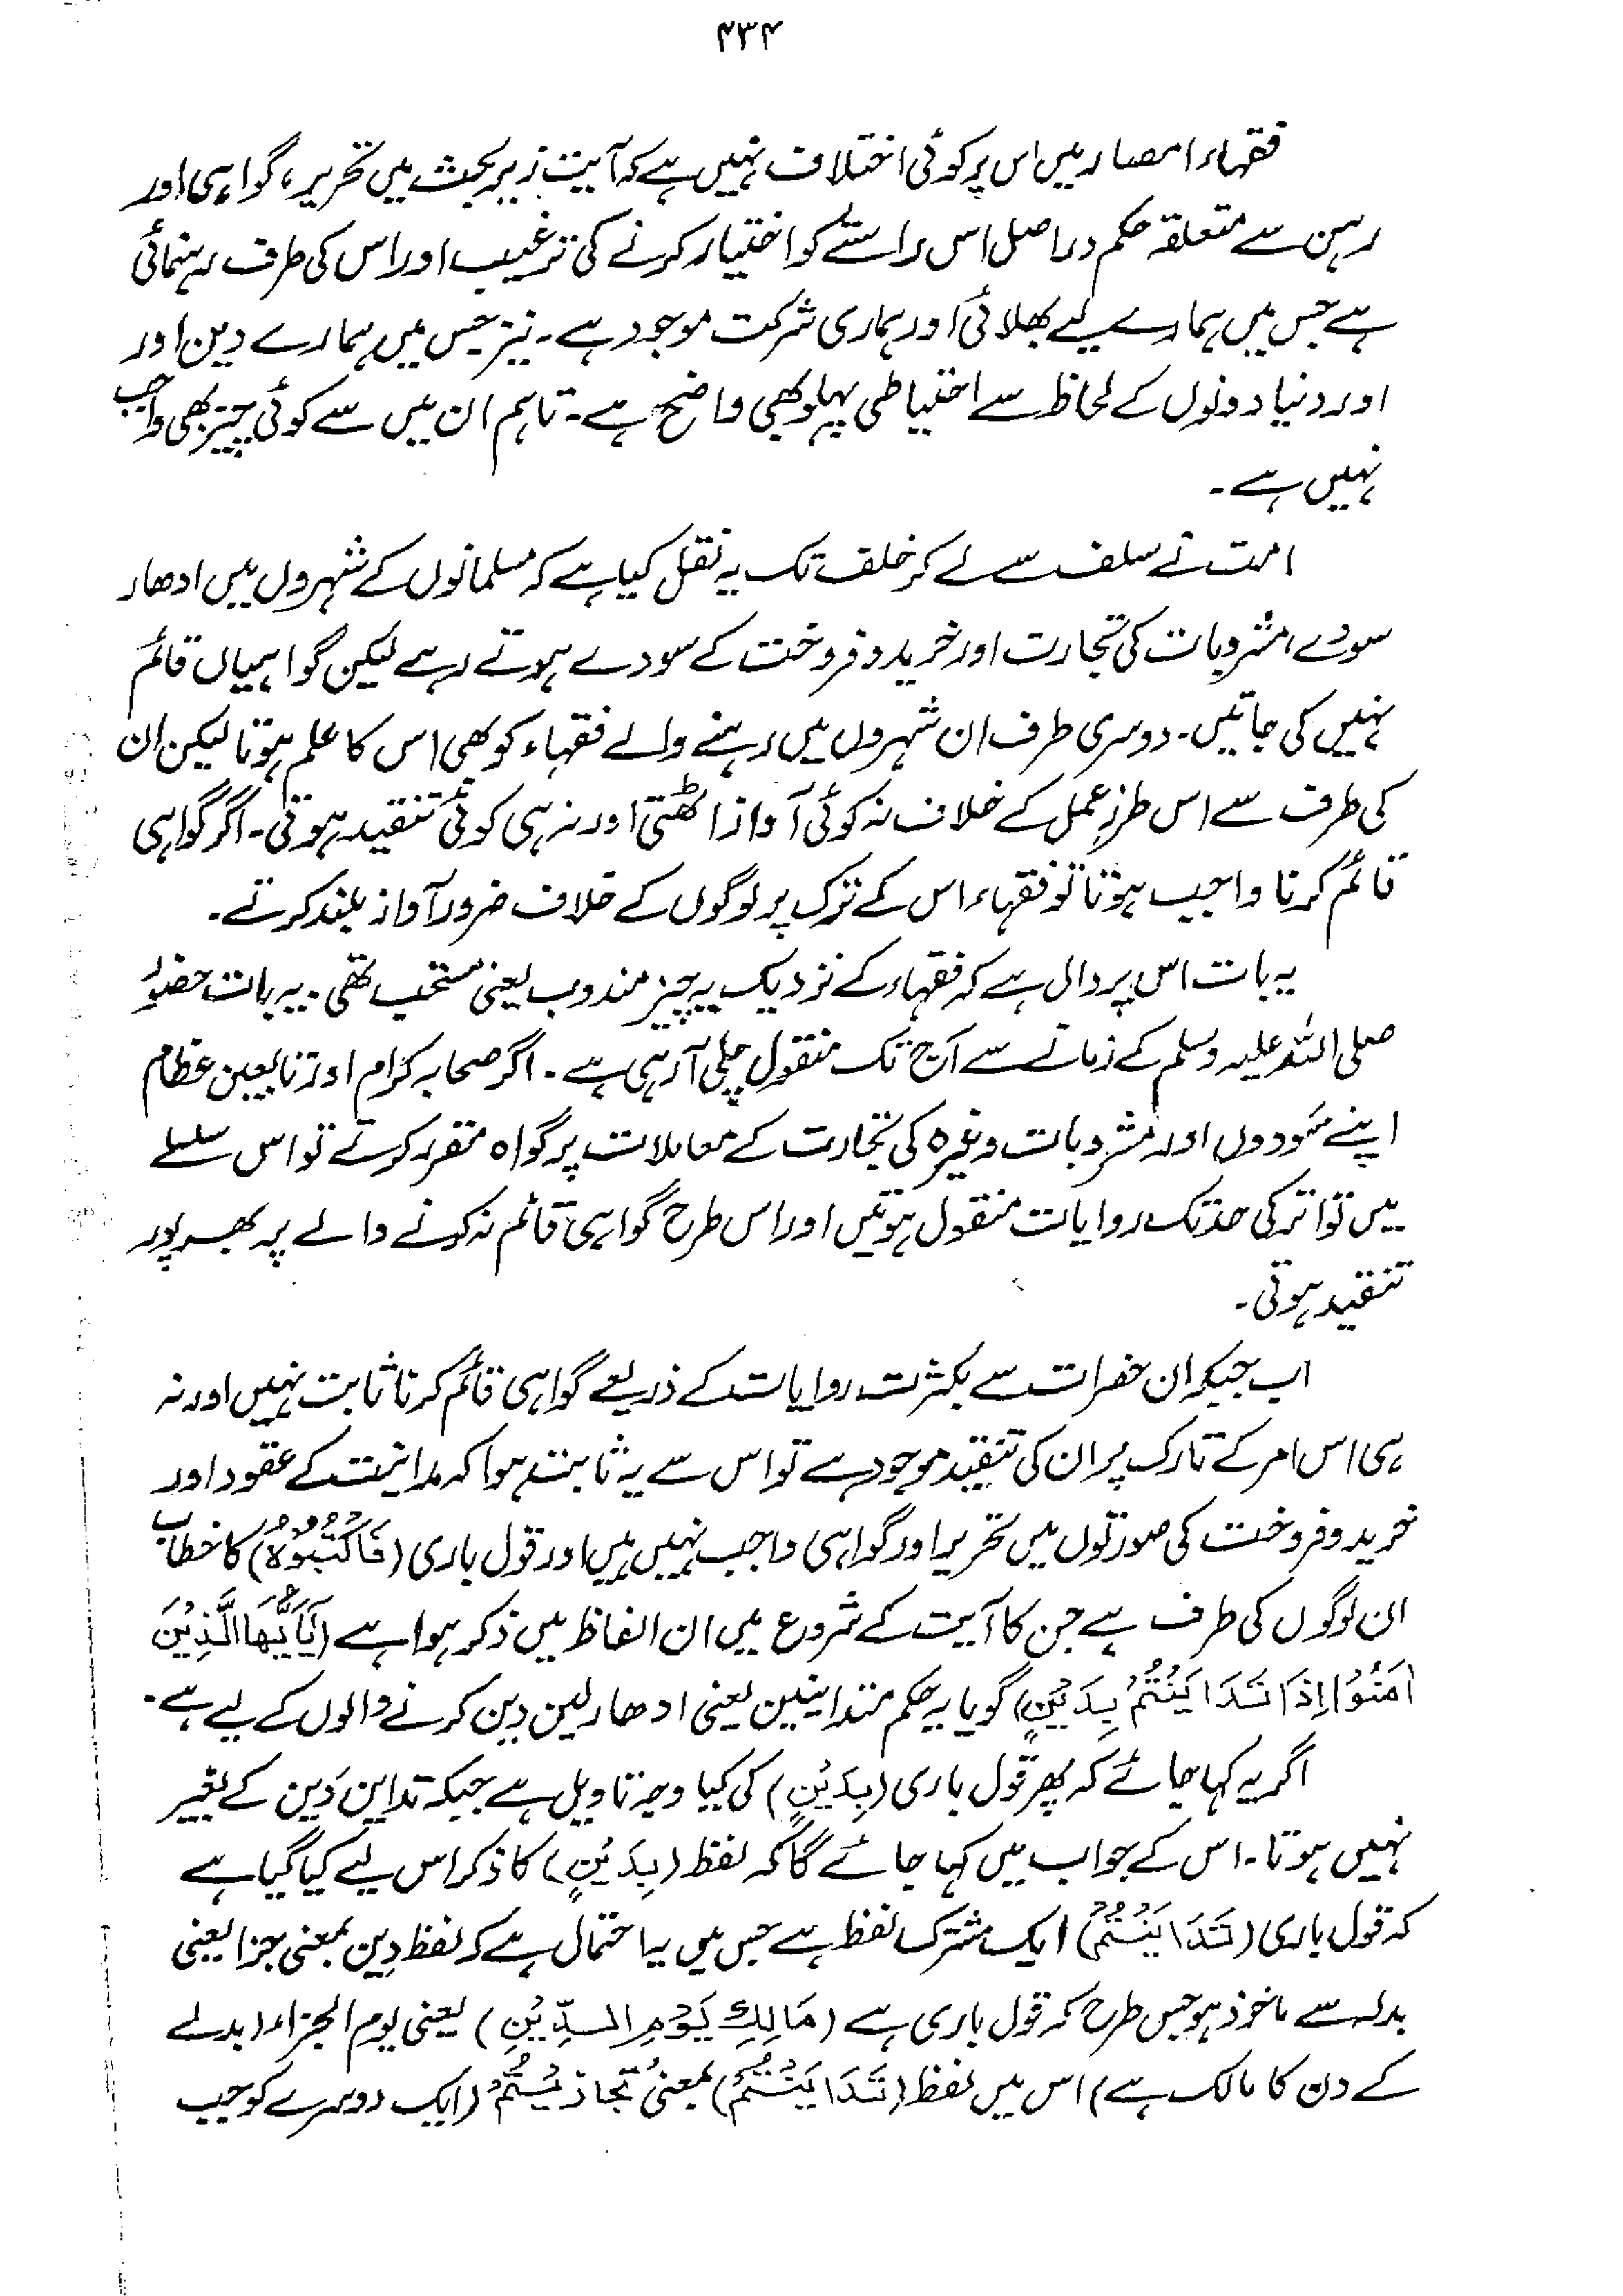 ۴۳۴
فقہاء امصار میں اس پر کوئی اختلاف نہیں ہے کہ آیت زیر بحث میں تحریر، گواہی اور
رہن سے متعلقہ حکم دراصل اس راستے کو اختیار کرنے کی ترغیب اور اس کی طرف رہنمائی
ہے جس میں ہمارے لیے بھلائی اور ہماری شرکت موجود ہے۔ نیز جس میں ہمارے دین اور
اور دنیا دونوں کے لحاظ سے احتیاطی پہلو بھی واضح ہے۔ تاہم ان میں سے کوئی چیز بھی واجب
نہیں ہے۔
امت نے سلف سے لے کر خلف تک یہ نقل کیا ہے کہ مسلمانوں کے شہروں میں ادھار
سودے، مشروبات کی تجارت اور خرید و فروخت کے سودے ہوتے رہے لیکن گواہیاں قائم
نہیں کی جاتیں۔ دوسری طرف ان شہروں میں رہنے والے فقہاء کو بھی اس کا علم ہوتا لیکن ان
کی طرف سے اس طرزِ عمل کے خلاف نہ کوئی آواز اٹھتی اور نہ ہی کوئی تنقید ہوتی۔ اگر گواہی
قائم کرنا واجب ہوتا تو فقہاء اس کے ترک پر لوگوں کے خلاف ضرور آواز بلند کرتے۔
یہ بات اس پر دال ہے کہ فقہاء کے نزدیک یہ چیز مندوب یعنی مستحب تھی۔ یہ بات حضور
صلی اللہ علیہ وسلم کے زمانے سے آج تک منقول چلی آرہی ہے۔ اگر صحابہ کرام اور تابعین عظام
اپنے سودوں اور مشروبات وغیرہ کی تجارت کے معاملات پر گواہ مقرر کرتے تو اس سلسلے
میں تواتر کی حد تک روایات منقول ہوتیں اور اس طرح گواہی قائم نہ کرنے والے پر بھرپور
تنقید ہوتی۔
اب جبکہ ان حضرات سے بکثرت روایات کے ذریعے گواہی قائم کرنا ثابت نہیں اور نہ
ہی اس امر کے تارک پر ان کی تنقید موجود ہے تو اس سے یہ ثابت ہوا کہ مداینت کے عقود اور
خرید و فروخت کی صورتوں میں تحریر اور گواہی واجب نہیں ہیں اور قول باری (فَاكْتُبُوْهُ) کا خطاب
ان لوگوں کی طرف ہے جن کا آیت کے شروع میں ان الفاظ میں ذکر ہوا ہے (يٰۤاَيُّهَا الَّذِيْنَ
اٰمَنُوْا اِذَا تَدَايَنْتُمْ بِدَيْنٍ) گویا یہ حکم متداینین یعنی ادھار لین دین کرنے والوں کے لیے ہے۔
اگر یہ کہا جائے کہ پھر قول باری (بِدَيْنٍ) کی کیا وجہ تاویل ہے جبکہ تداین دَین کے بغیر
نہیں ہوتا۔ اس کے جواب میں کہا جائے گا کہ لفظ (بِدَيْنٍ) کا ذکر اس لیے کیا گیا ہے
کہ قول باری (تَدَايَنْتُمْ) ایک مشترک لفظ ہے جس میں یہ احتمال ہے کہ لفظ دِین بمعنی جزا یعنی
بدلہ سے ماخوذ ہو جس طرح کہ قول باری ہے (مَالِكِ يَوْمِ الدِّيْنِ) یعنی یوم الجزاء (بدلے
کے دن کا مالک ہے) اس میں لفظ (تَدَايَنْتُمْ) بمعنی تجازیتُم (ایک دوسرے کو جب